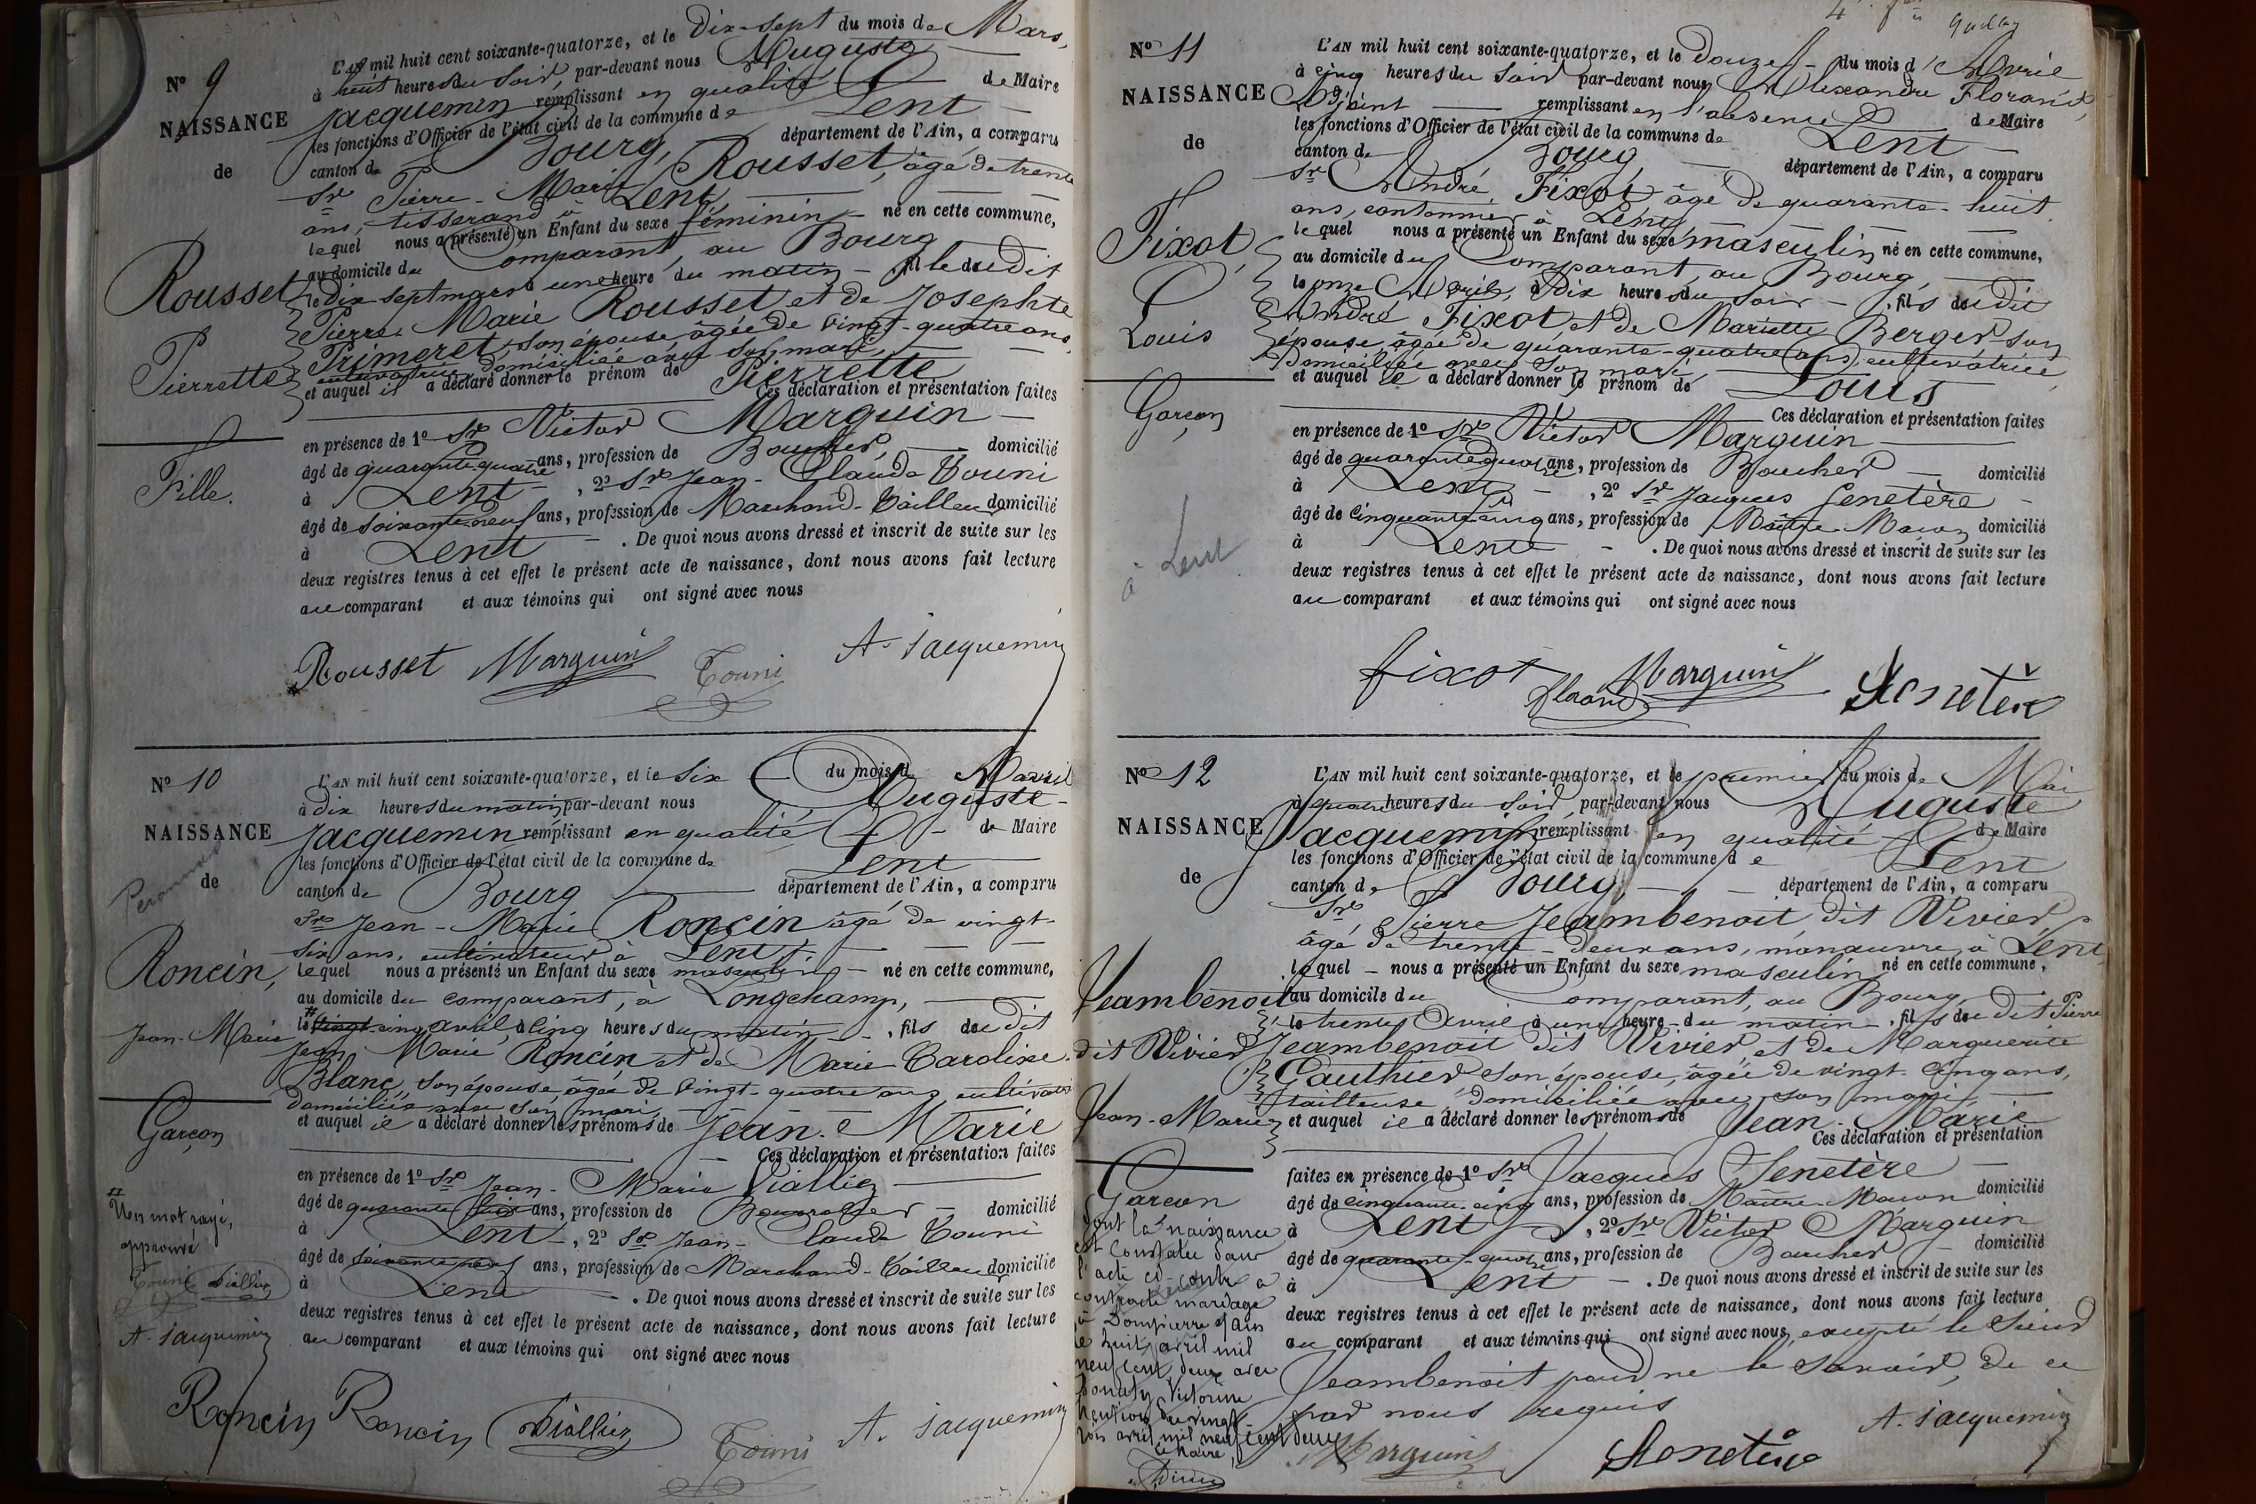 N° 9
NAISSANCE
de
Rousset
Pierrette
Fille.
L'AN mil huit cent soixante-quatorze, et le Dix-sept du mois de Mars,
à huit heures du Soir, par-devant nous Auguste
Jacquemin remplissant en qualité de Maire
les fonctions d'Officier de l'état civil de la commune de Lent
canton de Bourg, département de l'Ain, a comparu
Sr Pierre-Marie Rousset, âgé de trente
ans, tisserand à Lent,
lequel nous a présenté un Enfant du sexe féminin né en cette commune,
au domicile du Comparant, au Bourg
le Dix sept mars à une heure du matin fille dudit
Pierre Marie Rousset et de Josephte
Primeret, son épouse, âgée de vingt-quatre ans,
cultivatrice, domiciliée avec son mari,
et auquel il a déclaré donner le prénom de Pierrette
Ces déclaration et présentation faites
en présence de 1° Sr Victor Marguin
âgé de quarante-quatre ans, profession de Boucher, domicilié
à Lent, 2° Sr Jean-Claude Touni
âgé de soixante-neuf ans, profession de Marchand-Tailleur domicilié
à Lent. De quoi nous avons dressé et inscrit de suite sur les
deux registres tenus à cet effet le présent acte de naissance, dont nous avons fait lecture
au comparant et aux témoins qui ont signé avec nous
Rousset Marguin Touni A. Jacquemin
N° 10
NAISSANCE
de
Roncin,
Jean-Marie
Garçon
Un mot rayé,
approuvé
Touni Vialliez
A. Jacquemin
L'AN mil huit cent soixante-quatorze, et le Six du mois d'Avril
à dix heures du matin par-devant nous Auguste
Jacquemin remplissant en qualité de Maire
les fonctions d'Officier de l'état civil de la commune de Lent
canton de Bourg département de l'Ain, a comparu
Sr Jean-Marie Roncin âgé de vingt-
six ans, cultivateur à Lent,
lequel nous a présenté un Enfant du sexe masculin né en cette commune,
au domicile du comparant, à Longchamp,
le vingt cinq avril, à cinq heures du matin, fils dudit
Jean Marie Roncin et de Marie Caroline
Blanc, son épouse, âgée de vingt-quatre ans, cultivatrice
domiciliée avec son mari
et auquel il a déclaré donner les prénoms de Jean-Marie
Ces déclaration et présentation faites
en présence de 1° Sr Jean-Marie Vialliez
âgé de quarante ans, profession de Bourrelier domicilié
à Lent, 2° Sr Jean-Claude Touni
âgé de soixante neuf ans, profession de Marchand-Tailleur domicilié
à Lent. De quoi nous avons dressé et inscrit de suite sur les
deux registres tenus à cet effet le présent acte de naissance, dont nous avons fait lecture
au comparant et aux témoins qui ont signé avec nous
Roncin Roncin Vialliez Touni A. Jacquemin
N° 11
NAISSANCE
de
Fixot,
Louis
Garçon
à Lent
L'AN mil huit cent soixante-quatorze, et le Douze du mois d'Avril
à cinq heures du Soir par-devant nous Alexandre Florand,
Adjoint remplissant en l'absence de Maire
les fonctions d'Officier de l'état civil de la commune de Lent
canton de Bourg département de l'Ain, a comparu
Sr André Fixot âgé de quarante-huit
ans, cantonnier à Lent,
lequel nous a présenté un Enfant du sexe masculin né en cette commune,
au domicile du Comparant, au Bourg,
le onze Avril, à dix heures du Soir, fils dudit
André Fixot, et de Mariette Berger son
épouse, âgée de quarante-quatre ans, cultivatrice,
domiciliée avec son mari,
et auquel il a déclaré donner le prénom de Louis
Ces déclaration et présentation faites
en présence de 1° Sr Victor Marguin
âgé de quarante quatre ans, profession de Boucher domicilié
à Lent, 2° Sr Jacques Senetère
âgé de Cinquante-cinq ans, profession de Maître-Maçon domicilié
à Lent. De quoi nous avons dressé et inscrit de suite sur les
deux registres tenus à cet effet le présent acte de naissance, dont nous avons fait lecture
au comparant et aux témoins qui ont signé avec nous
fixot Marguin
Florand Senetère
N° 12
NAISSANCE
de
Jeambenoit
dit Vivier
Jean-Marie
Garçon
dont la naissance
est constatée dans
l'acte ci-contre a
contracté mariage
à Dompierre s/ Ain
le huit avril mil
neuf cent deux avec
Victorine
avril mil neuf cent deux
Le Maire,
L'AN mil huit cent soixante-quatorze, et le premier du mois de Mai
à quatre heures du Soir par-devant nous Auguste
Jacquemin remplissant en qualité de Maire
les fonctions d'Officier de l'état civil de la commune de Lent
canton de Bourg département de l'Ain, a comparu
Sr Pierre Jeambenoit dit Vivier,
âgé de trente-deux ans, manœuvre à Lent,
lequel nous a présenté un Enfant du sexe masculin né en cette commune,
au domicile du Comparant, au Bourg,
le trente Avril à une heure du matin, fils dudit Pierre
Jeambenoit dit Vivier, et de Marguerite
Gauthier son épouse, âgée de vingt-cinq ans,
tailleuse, domiciliée avec son mari,
et auquel il a déclaré donner les prénoms de Jean-Marie
Ces déclaration et présentation
faites en présence de 1° Sr Jacques Senetère
âgé de cinquante-cinq ans, profession de Maître-Maçon domicilié
à Lent, 2° Sr Victor Marguin
âgé de quarante-quatre ans, profession de Boucher domicilié
à Lent. De quoi nous avons dressé et inscrit de suite sur les
deux registres tenus à cet effet le présent acte de naissance, dont nous avons fait lecture
au comparant et aux témoins qui ont signé avec nous, excepté le Sieur
Jeambenoit pour ne le savoir, de ce
par nous requis
Marguin Senetère A. Jacquemin